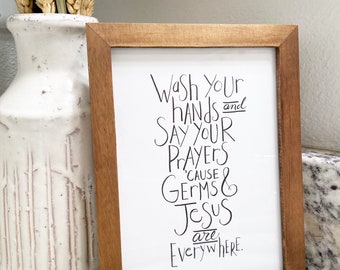 Wash your
hands and
Say your
Prayers
'cause
Germs &
Jesus
are
Everywhere.